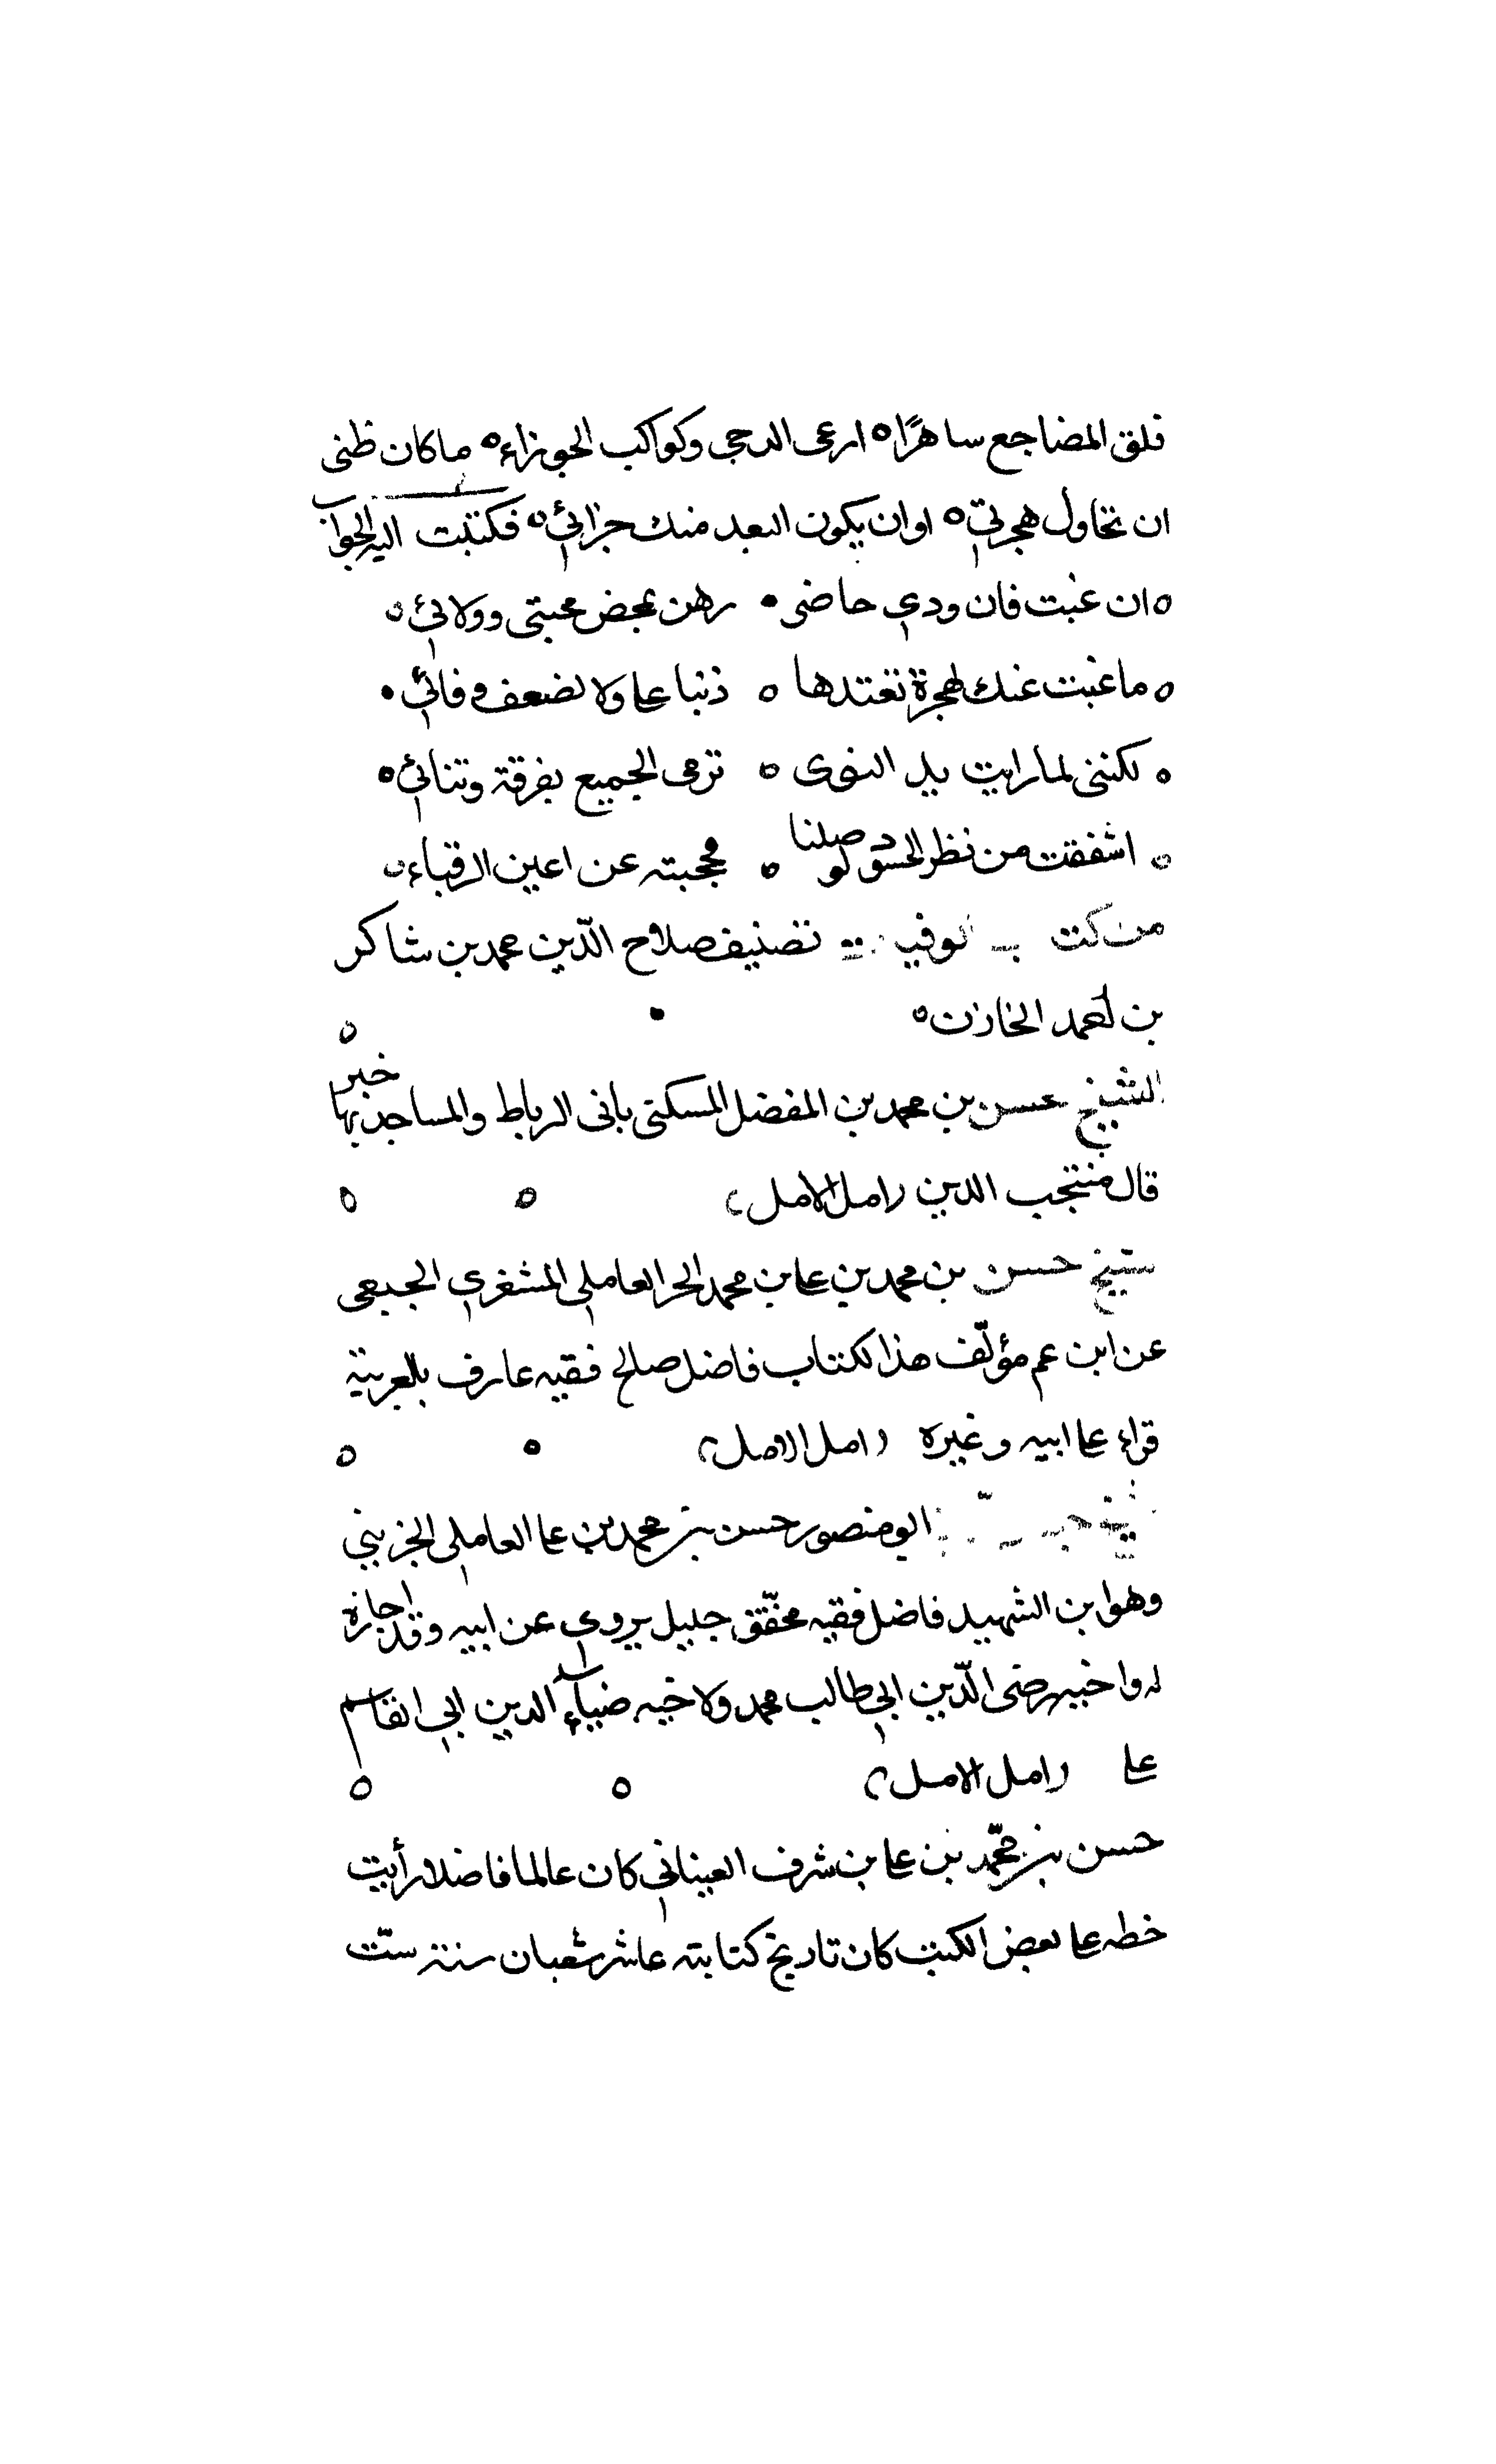 قلق المضاجع ساهرًا ه ارعى الدجى وكواكب الجوزاء ه ما كان ظنى
ان تحاول هجرتي ه او ان يكون البعد منك جزائي ه فكتبت اليه الجواب
ه ان غبت فان ودي حاضر • رهن بمحض محبتى وولائي ه
ه ما غبت عنك لهجرة تعتدها ه ذنبا على ولا لضعف وفائي •
ه لكننى لما رايت يد النوى ه ترمى الجميع بفرقة وتنائي ه
ه اشفقت من نظر الحسود لوصلنا ه فحجبته عن اعين الرقباء ه
من كتب تصنيف صلاح الدّين محمد بن شاكر
بن احمد الخازن ه • ه
الشيخ حسن بن محمد بن المفضل المسكنى بانى الرباط والمساجد بها خير
قال منتجب الدين (امل الامل) ه ه
شيخ حسن بن محمد بن علي بن محمد الحر العاملي المشغري الجبعى
عن ابن عم مؤلّف هذا الكتاب فاضل صالح فقيه عارف بالعربية
قراء على ابيه وغيره (امل الامل) ه ه
شيخ ابو منصور حسن بن محمد بن على العاملي الجزيني
وهو ابن الشهيد فاضل فقيه محقّق جليل يروي عن ابيه وقد اجازه
له واخيه رضى الدّين ابي طالب محمد ولاخيه ضياء الدين ابي القاسم
على (امل الامل) ه ه
حسن بن محمّد بن على بن شرف العيناني كان عالما فاضلا رأيت
خطه على بعض الكتب كان تاريخ كتابته عاشر شعبان سنة ستّ